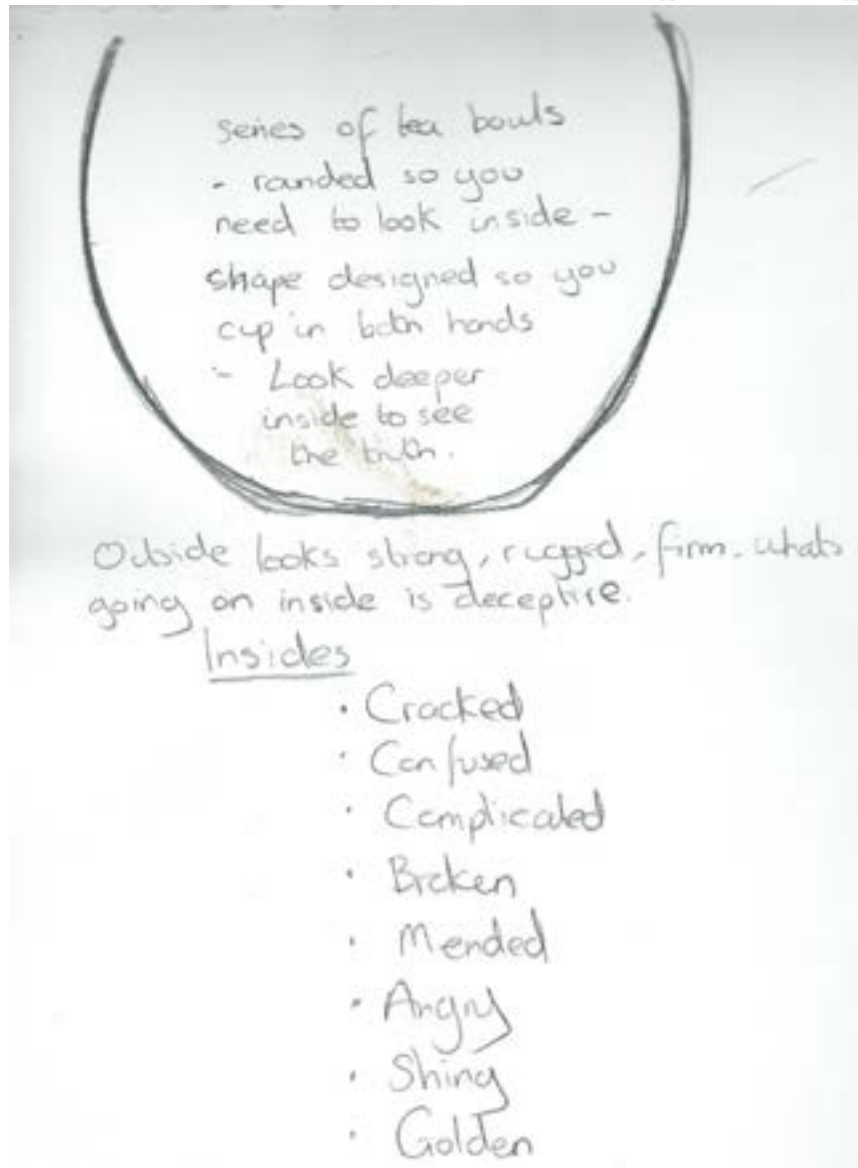 Series of tea bowls
- rounded so you
need to look inside -
shape designed so you
cup in both hands
- Look deeper
inside to see
the truth.
Outside looks strong, rugged, firm. whats
going on inside is deceptive.
Insides
· Cracked
· Confused
· Complicated
· Broken
· Mended
· Angry
· Shiny
· Golden